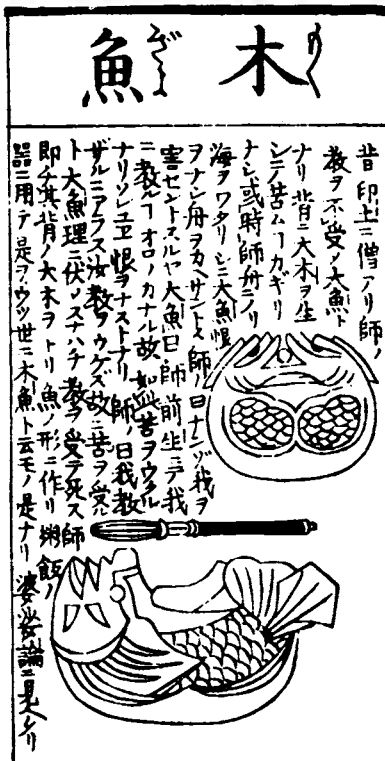 木魚
もくぎよ
昔印土ニ僧アリ師ノ
教ヲ不受ノ大魚ト
ナリ背ニ大木ヲ生
シテ苦ムフカギリ
ナシ或時師舟ニノリ
海ヲワタリシニ大魚恨
ヲナシ舟ヲカヘサントス師ノ曰ナンゾ我ヲ
害セントスルヤ大魚曰師前生ニテ我
ニ教ルフオロソカナル故如此苦ヲウクル
ナリソレユヱ恨ヲナストナリ師ノ曰我教
ザルニアラス汝教ヲウケズ故ニ苦ヲ受ル
ト大魚理ニ伏ノスナハチ教ヲ受テ死ス師
即チ其背ノ大木ヲトリ魚ノ形ニ作リ粥飯ノ
器ニ用テ是ヲウツ世ニ木魚ト云モノ是ナリ婆娑論ニ見ヘタリ